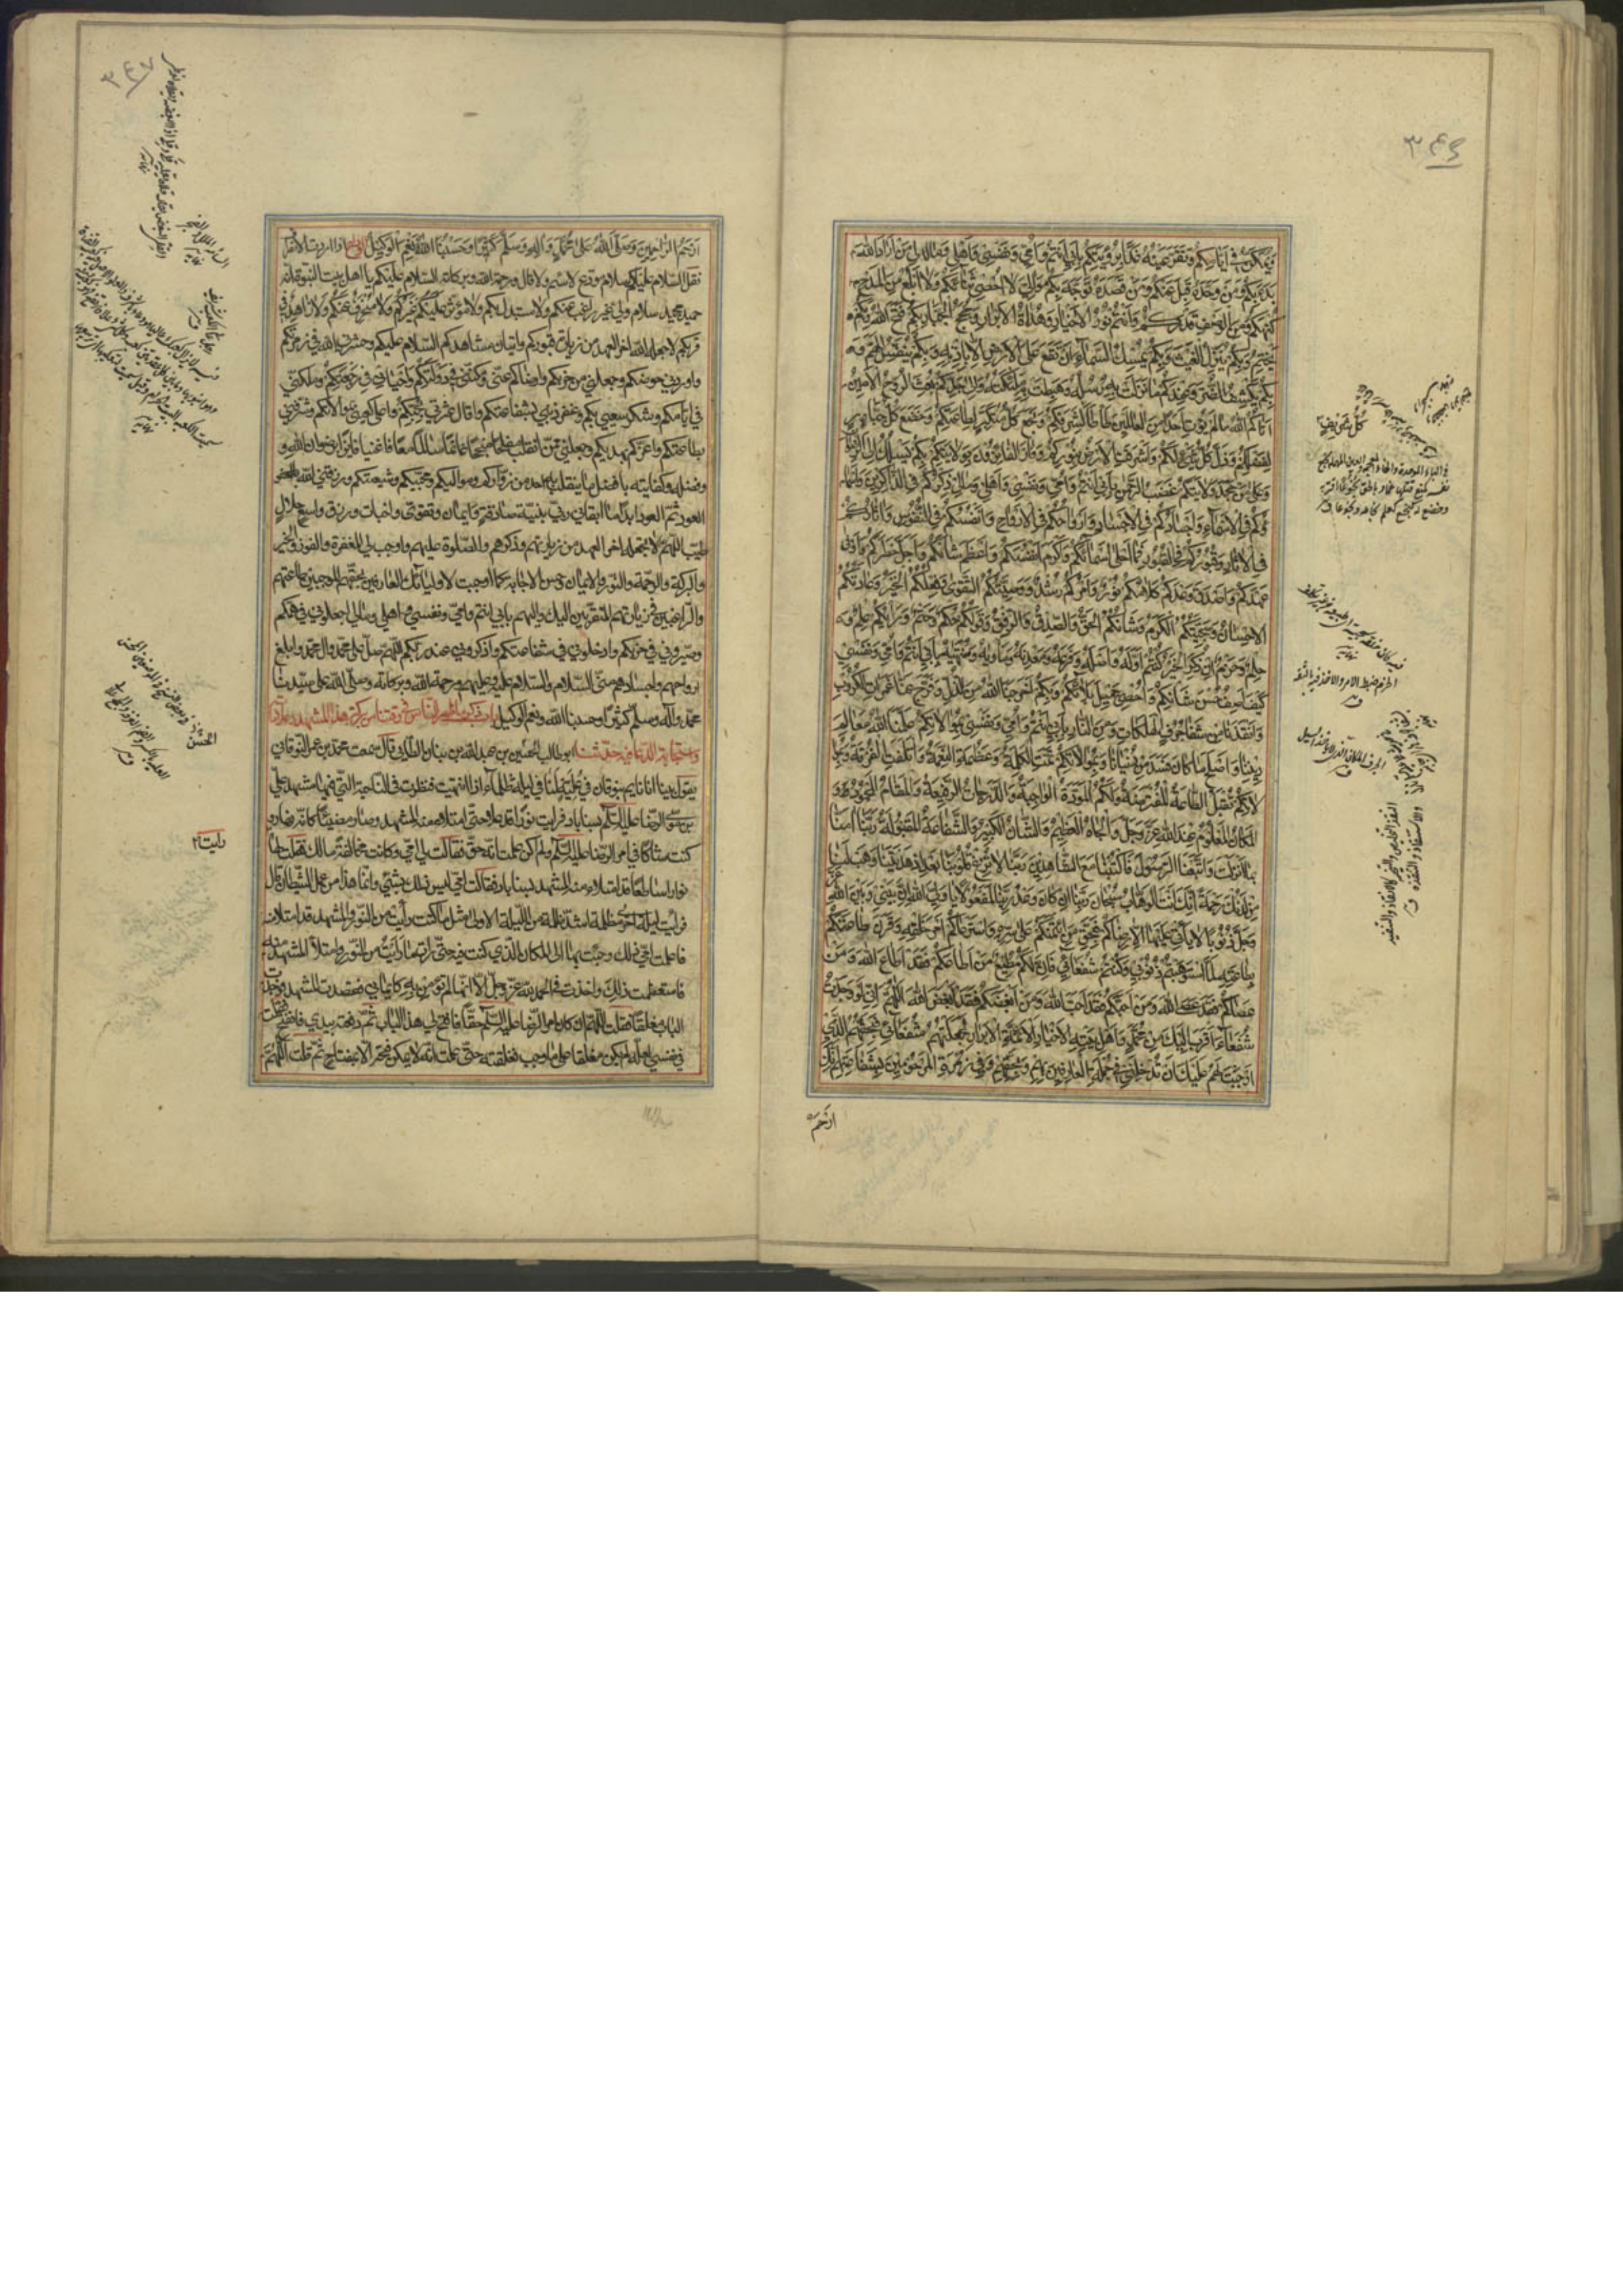 ٣٤٦
وَيُمَكَّنُ فِي أَيَّامِكُمْ وَتَقَرُّ عَيْنُهُ غَدًا بِرُؤْيَتِكُمْ بِأَبِي أَنْتُمْ وَأُمِّي وَنَفْسِي وَأَهْلِي وَمَالِي مَنْ أَرَادَ اللهَ
بَدَءَ بِكُمْ وَمَنْ وَحَّدَهُ قَبِلَ عَنْكُمْ وَمَنْ قَصَدَهُ تَوَجَّهَ بِكُمْ مَوَالِيَّ لَا أُحْصِي ثَنَاءَكُمْ وَلَا أَبْلُغُ مِنَ الْمَدْحِ
كُنْهَكُمْ وَمِنَ الْوَصْفِ قَدْرَكُمْ وَأَنْتُمْ نُورُ الْأَخْيَارِ وَهُدَاةُ الْأَبْرَارِ وَحُجَجُ الْجَبَّارِ بِكُمْ فَتَحَ اللهُ وَبِكُمْ
يَخْتِمُ وَبِكُمْ يُنَزِّلُ الْغَيْثَ وَبِكُمْ يُمْسِكُ السَّمَاءَ أَنْ تَقَعَ عَلَى الْأَرْضِ إِلَّا بِإِذْنِهِ وَبِكُمْ يُنَفِّسُ الْهَمَّ وَ
بِكُمْ يَكْشِفُ الضُّرَّ وَعِنْدَكُمْ مَا نَزَلَتْ بِهِ رُسُلُهُ وَهَبَطَتْ بِهِ مَلَائِكَتُهُ وَإِلَى جَدِّكُمْ بُعِثَ الرُّوحُ الْأَمِينُ
آتَاكُمُ اللهُ مَا لَمْ يُؤْتِ أَحَدًا مِنَ الْعَالَمِينَ طَأْطَأَ كُلُّ شَرِيفٍ لِشَرَفِكُمْ وَبَخَعَ كُلُّ مُتَكَبِّرٍ لِطَاعَتِكُمْ وَخَضَعَ كُلُّ جَبَّارٍ
لِفَضْلِكُمْ وَذَلَّ كُلُّ شَيْءٍ لَكُمْ وَأَشْرَقَتِ الْأَرْضُ بِنُورِكُمْ وَفَازَ الْفَائِزُونَ بِوَلَايَتِكُمْ بِكُمْ يُسْلَكُ إِلَى الرِّضْوَانِ
وَعَلَى مَنْ جَحَدَ وَلَايَتَكُمْ غَضَبُ الرَّحْمَنِ بِأَبِي أَنْتُمْ وَأُمِّي وَنَفْسِي وَأَهْلِي وَمَالِي ذِكْرُكُمْ فِي الذَّاكِرِينَ وَأَسْمَاءُ
ؤُكُمْ فِي الْأَسْمَاءِ وَأَجْسَادُكُمْ فِي الْأَجْسَادِ وَأَرْوَاحُكُمْ فِي الْأَرْوَاحِ وَأَنْفُسُكُمْ فِي النُّفُوسِ وَآثَارُكُمْ
فِي الْآثَارِ وَقُبُورُكُمْ فِي الْقُبُورِ فَمَا أَحْلَى أَسْمَاءَكُمْ وَأَكْرَمَ أَنْفُسَكُمْ وَأَعْظَمَ شَأْنَكُمْ وَأَجَلَّ خَطَرَكُمْ وَأَوْفَى
عَهْدَكُمْ وَأَصْدَقَ وَعْدَكُمْ كَلَامُكُمْ نُورٌ وَأَمْرُكُمْ رُشْدٌ وَوَصِيَّتُكُمُ التَّقْوَى وَفِعْلُكُمُ الْخَيْرُ وَعَادَتُكُمُ
الْإِحْسَانُ وَسَجِيَّتُكُمُ الْكَرَمُ وَشَأْنُكُمُ الْحَقُّ وَالصِّدْقُ وَالرِّفْقُ وَقَوْلُكُمْ حُكْمٌ وَحَتْمٌ وَرَأْيُكُمْ عِلْمٌ وَ
حِلْمٌ وَحَزْمٌ إِنْ ذُكِرَ الْخَيْرُ كُنْتُمْ أَوَّلَهُ وَأَصْلَهُ وَفَرْعَهُ وَمَعْدِنَهُ وَمَأْوَاهُ وَمُنْتَهَاهُ بِأَبِي أَنْتُمْ وَأُمِّي وَنَفْسِي
كَيْفَ أَصِفُ حُسْنَ ثَنَائِكُمْ وَأُحْصِي جَمِيلَ بَلَائِكُمْ وَبِكُمْ أَخْرَجَنَا اللهُ مِنَ الذُّلِّ وَفَرَّجَ عَنَّا غَمَرَاتِ الْكُرُوبِ
وَأَنْقَذَنَا مِنْ شَفَا جُرُفِ الْهَلَكَاتِ وَمِنَ النَّارِ بِأَبِي أَنْتُمْ وَأُمِّي وَنَفْسِي بِمُوَالَاتِكُمْ عَلَّمَنَا اللهُ مَعَالِمَ
دِينِنَا وَأَصْلَحَ مَا كَانَ فَسَدَ مِنْ دُنْيَانَا وَبِمُوَالَاتِكُمْ تَمَّتِ الْكَلِمَةُ وَعَظُمَتِ النِّعْمَةُ وَائْتَلَفَتِ الْفُرْقَةُ وَبِمُوَا
لَاتِكُمْ تُقْبَلُ الطَّاعَةُ الْمُفْتَرَضَةُ وَلَكُمُ الْمَوَدَّةُ الْوَاجِبَةُ وَالدَّرَجَاتُ الرَّفِيعَةُ وَالْمَقَامُ الْمَحْمُودُ وَ
الْمَكَانُ الْمَعْلُومُ عِنْدَ اللهِ عَزَّ وَجَلَّ وَالْجَاهُ الْعَظِيمُ وَالشَّأْنُ الْكَبِيرُ وَالشَّفَاعَةُ الْمَقْبُولَةُ رَبَّنَا آمَنَّا
بِمَا أَنْزَلْتَ وَاتَّبَعْنَا الرَّسُولَ فَاكْتُبْنَا مَعَ الشَّاهِدِينَ رَبَّنَا لَا تُزِغْ قُلُوبَنَا بَعْدَ إِذْ هَدَيْتَنَا وَهَبْ لَنَا
مِنْ لَدُنْكَ رَحْمَةً إِنَّكَ أَنْتَ الْوَهَّابُ سُبْحَانَ رَبِّنَا إِنْ كَانَ وَعْدُ رَبِّنَا لَمَفْعُولًا يَا وَلِيَّ اللهِ إِنَّ بَيْنِي وَبَيْنَ اللهِ عَزَّ
وَجَلَّ ذُنُوبًا لَا يَأْتِي عَلَيْهَا إِلَّا رِضَاكُمْ فَبِحَقِّ مَنِ ائْتَمَنَكُمْ عَلَى سِرِّهِ وَاسْتَرْعَاكُمْ أَمْرَ خَلْقِهِ وَقَرَنَ طَاعَتَكُمْ
بِطَاعَتِهِ لَمَّا اسْتَوْهَبْتُمْ ذُنُوبِي وَكُنْتُمْ شُفَعَائِي فَإِنِّي لَكُمْ مُطِيعٌ مَنْ أَطَاعَكُمْ فَقَدْ أَطَاعَ اللهَ وَمَنْ
عَصَاكُمْ فَقَدْ عَصَى اللهَ وَمَنْ أَحَبَّكُمْ فَقَدْ أَحَبَّ اللهَ وَمَنْ أَبْغَضَكُمْ فَقَدْ أَبْغَضَ اللهَ اللَّهُمَّ إِنِّي لَوْ وَجَدْتُ
شُفَعَاءَ أَقْرَبَ إِلَيْكَ مِنْ مُحَمَّدٍ وَأَهْلِ بَيْتِهِ الْأَخْيَارِ الْأَئِمَّةِ الْأَبْرَارِ لَجَعَلْتُهُمْ شُفَعَائِي فَبِحَقِّهِمُ الَّذِي
أَوْجَبْتَ لَهُمْ عَلَيْكَ أَنْ تُدْخِلَنِي فِي جُمْلَةِ الْعَارِفِينَ بِهِمْ وَبِحَقِّهِمْ وَفِي زُمْرَةِ الْمَرْحُومِينَ بِشَفَاعَتِهِمْ إِنَّكَ
ارْحَمُ
٣٤٧
ارحم الراحمين وصلى الله على محمد وآله وسلم كثيرا وحسبنا الله ونعم الوكيل الوداع اذا اردت الانصراف
فقل السلام عليكم سلام مودع لا سئم ولا قال ورحمة الله وبركاته السلام عليكم يا اهل بيت النبوة انه
حميد مجيد سلام ولي غير راغب عنكم ولا مستبدل بكم ولا مؤثر عليكم غيركم ولا منحرف عنكم ولا زاهد في
قربكم لا جعله الله اخر العهد من زيارة قبوركم واتيان مشاهدكم السلام عليكم وحشرني الله في زمرتكم
واوردني حوضكم وجعلني من حزبكم وارضاكم عني ومكنني في دولتكم واحياني في رجعتكم وملكني
في ايامكم وشكر سعيي بكم وغفر ذنبي بشفاعتكم واقال عثرتي بمحبتكم واعلى كعبي بموالاتكم وشرفني
بطاعتكم واعزني بهديكم وجعلني ممن انقلب مفلحا منجحا غانما سالما معافا غنيا فائزا برضوان الله و
وفضله وكفايته بافضل ما ينقلب به احد من زواركم ومواليكم ومحبيكم وشيعتكم ورزقني الله العود
العود ثم العود ابدا ما ابقاني ربي بنية صادقة وايمان وتقوى واخبات ورزق واسع حلال
طيب اللهم لا تجعله اخر العهد من زيارتهم وذكرهم والصلوة عليهم واوجب لي المغفرة والفوز والخير
والبركة والرحمة والنور والايمان وحسن الاجابة كما اوجبت لاوليائك العارفين بحقهم الموجبين طاعتهم
والراغبين في زيارتهم المتقربين اليك واليهم بابي انتم وامي ونفسي واهلي ومالي اجعلوني في همكم
وصيروني في حزبكم وادخلوني في شفاعتكم واذكروني عند ربكم اللهم صل على محمد وال محمد وابلغ
ارواحهم واجسادهم مني السلام والسلام عليه وعليهم ورحمة الله وبركاته وصلى الله على سيدنا
محمد وآله وسلم كثيرا وحسبنا الله ونعم الوكيل باب في ذكر ما ظهر للناس في وقتنا من بركة هذا المشهد وعلاماته
واستجابة الدعاء فيه حدثنا ابو طالب الحسين بن عبد الله بن بنان الطائي قال سمعت محمد بن عمر النوقاني
يقول بينا انا نايم بنوقان في علية لنا في ليلة ظلماء اذ انتبهت فنظرت في الناحية التي فيها مشهد علي
بن موسى الرضا عليه السلام بسناباد فرايت نورا قد علا حتى امتلا منه المشهد وصار مضيئا كانه نهار
كنت شاكا في امر الرضا عليه السلام ولم اكن علمت انه حق فقالت لي امي وكانت مخالفة مالك فقلت لها
نورا ساطعا قد امتلا منه المشهد بسناباد فقالت امي ليس ذلك بشيء وانما هذا من عمل الشيطان قال
فرايت ليلة اخرى مظلمة اشد ظلمة من الليلة الاولى مثل ما كنت رأيت من النور والمشهد قد امتلا منه
فاعلمت امي ذلك وجئت بها الى المكان الذي كنت فيه حتى رات ما رأيت من النور وامتلأ المشهد منه
فاستعظمت ذلك واخذت في الحمد لله عز وجل الا انها لم تؤمن به كايماني فقصدت المشهد فوجدت
الباب مغلقا فقلت اللهم ان كان امر الرضا عليه السلام حقا فافتح لي هذا الباب ثم دفعته بيدي فانفتح فقلت
في نفسي لعله لم يكن مغلقا على ما وجب فغلقته حتى علمت انه لا يمكن فتحه الا بمفتاح ثم قلت اللهم
رايت ٢